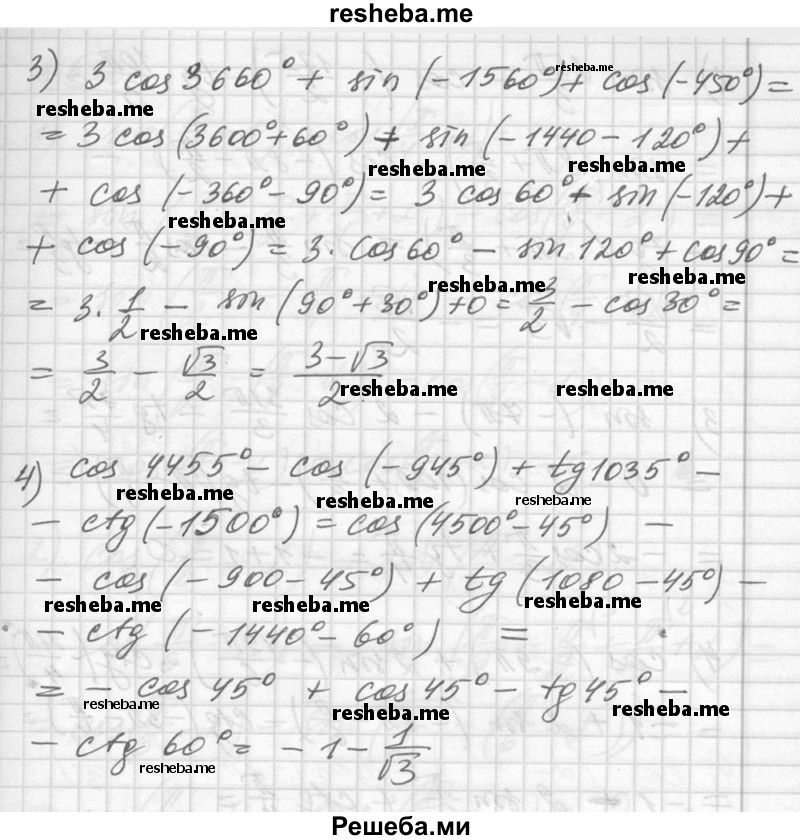 resheba.me
3) 3 cos 3660° + sin (-1560°) + cos (-450°) =
resheba.me
resheba.me
= 3 cos (3600° + 60°) + sin (-1440 - 120°) +
resheba.me resheba.me
+ cos (-360° - 90°) = 3 cos 60° + sin (-120°) +
resheba.me
+ cos (-90°) = 3. cos 60° - sin 120° + cos 90° =
resheba.me resheba.me
= 3. 1/2 - sin (90° + 30°) + 0 = 3/2 - cos 30° =
resheba.me
= 3/2 - √3/2 = 3-√3/2
resheba.me resheba.me
4) cos 4455° - cos (-945°) + tg 1035° -
resheba.me resheba.me resheba.me
- ctg (-1500°) = cos (4500° - 45°) -
- cos (-900 - 45°) + tg (1080 - 45°) -
resheba.me resheba.me resheba.me
- ctg (-1440° - 60°) =
= - cos 45° + cos 45° - tg 45° -
resheba.me resheba.me resheba.me
- ctg 60° = -1 - 1/√3
resheba.me
Решеба.ми